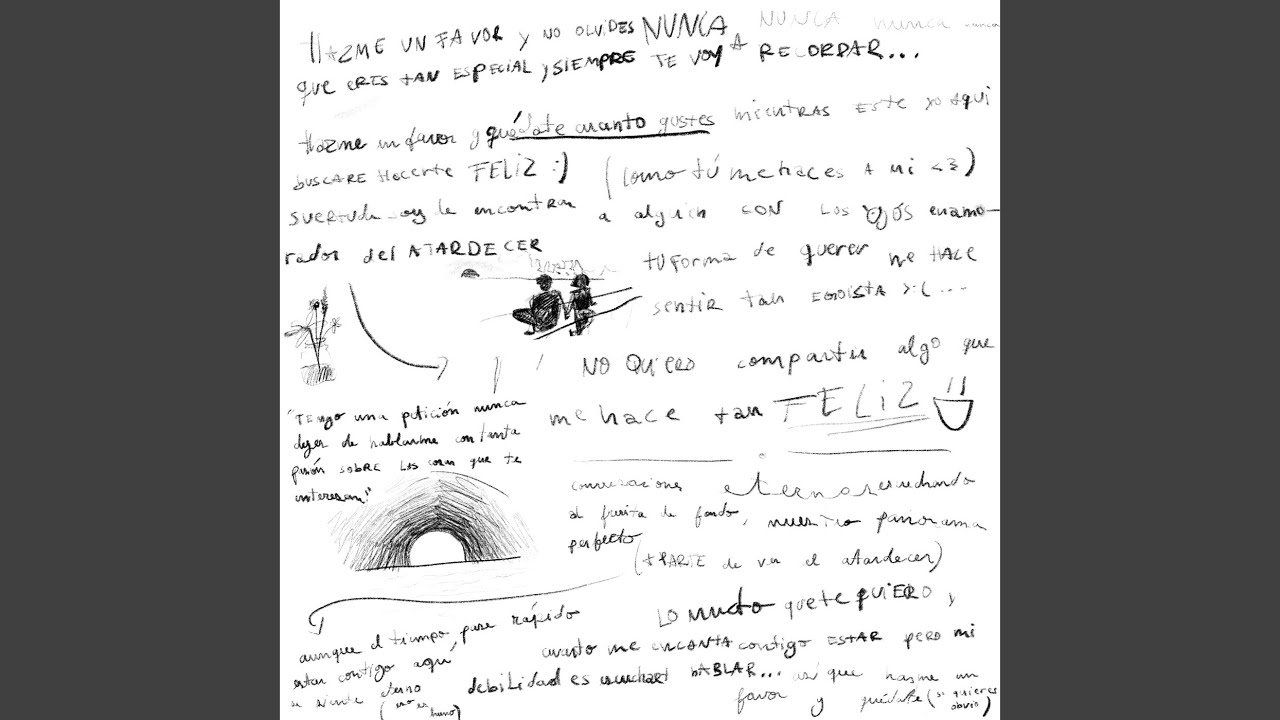 HAZME UN FAVOR y NO OLVIDES NUNCA NUNCA nunca nunca
que eres tan ESPECIAL y SIEMPRE TE VOY A RECORDAR...
Hazme un favor y quédate cuanto gustes mientras este yo Aqui
BUSCARE Hacerte FELIZ :) (como tú me haces A mi <3)
SUERTUDA soy de encontrar a alguien CON LOS OJOS enamo-
rados del ATARDECER
tu forma de querer me HACE
sentir tan EGOISTA >:( ...
NO QUIERO compartir algo que
me hace tan FELIZ
"TEngo una petición nunca
dejes de hablarme con tanta
pasión SOBRE LAS cosas que te
interesan!"
conversaciones eternas escuchando
al fuerita de fondo, nuestro panorama
perfecto
(+ PARTE de ver el atardecer)
aunque el tiempo pase rápido
estar contigo aquí,
se siente eterno
(eso es bueno)
LO mucho que te QUIERO y
cuanto me ENCANTA contigo ESTAR pero mi
debilidad es escuchart HABLAR... así que hazme un
favor y quédate (si quieres
obvio)